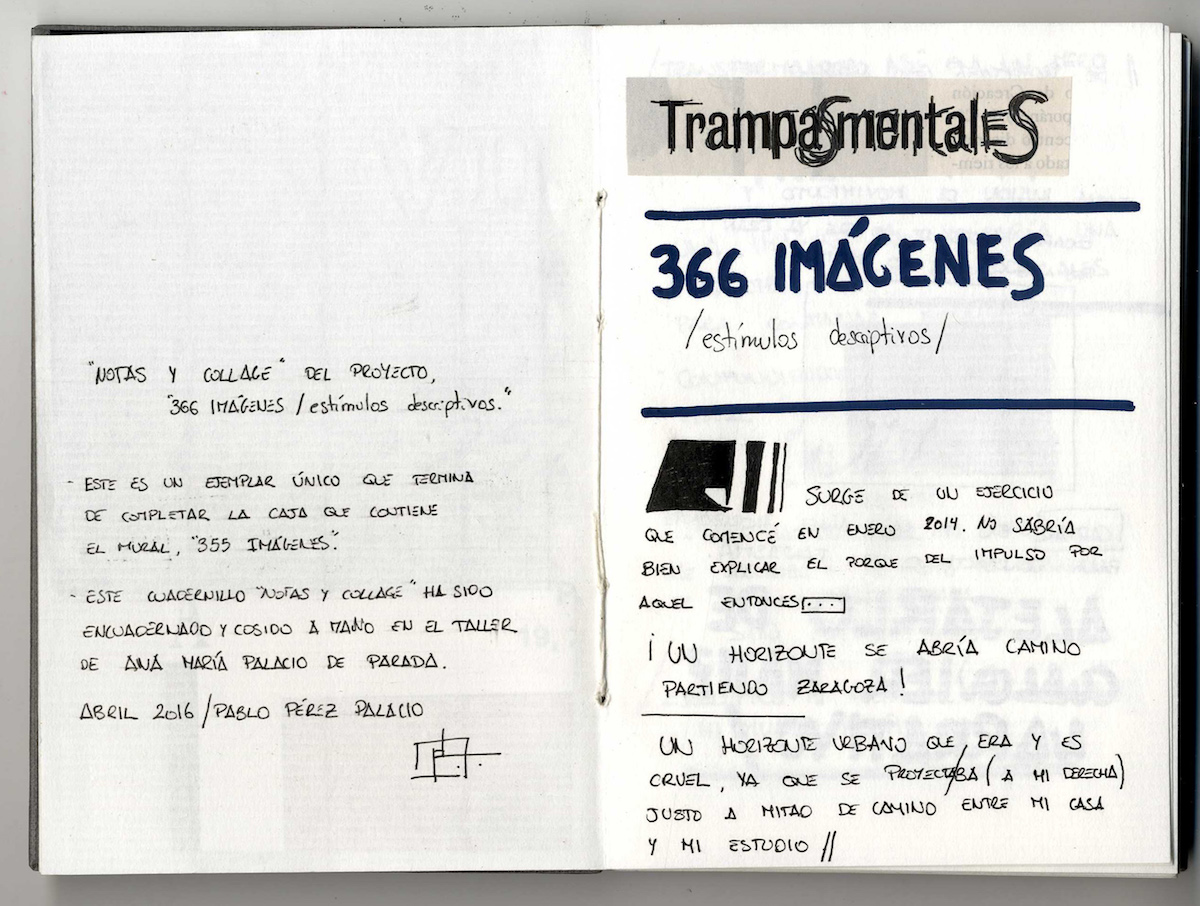 "NOTAS Y COLLAGE" DEL PROYECTO,
"366 IMÁGENES /estímulos descriptivos."
- ESTE ES UN EJEMPLAR ÚNICO QUE TERMINA
DE COMPLETAR LA CAJA QUE CONTIENE
EL MURAL, "355 IMÁGENES".
- ESTE CUADERNILLO "NOTAS Y COLLAGE" HA SIDO
ENCUADERNADO Y COSIDO A MANO EN EL TALLER
DE ANA MARÍA PALACIO DE PARADA.
ABRIL 2016/PABLO PÉREZ PALACIO
TrampaSmentaleS
366 IMÁGENES
/estímulos descriptivos/
SURGE DE UN EJERCICIO
QUE COMENCÉ EN ENERO 2014. NO SABRÍA
BIEN EXPLICAR EL PORQUE DEL IMPULSO POR
AQUEL ENTONCES...
¡UN HORIZONTE SE ABRÍA CAMINO
PARTIENDO ZARAGOZA!
UN HORIZONTE URBANO QUE, ERA Y ES
CRUEL, YA QUE SE PROYECTABA (A MI DERECHA)
JUSTO A MITAD DE CAMINO ENTRE MI CASA
Y MI ESTUDIO //